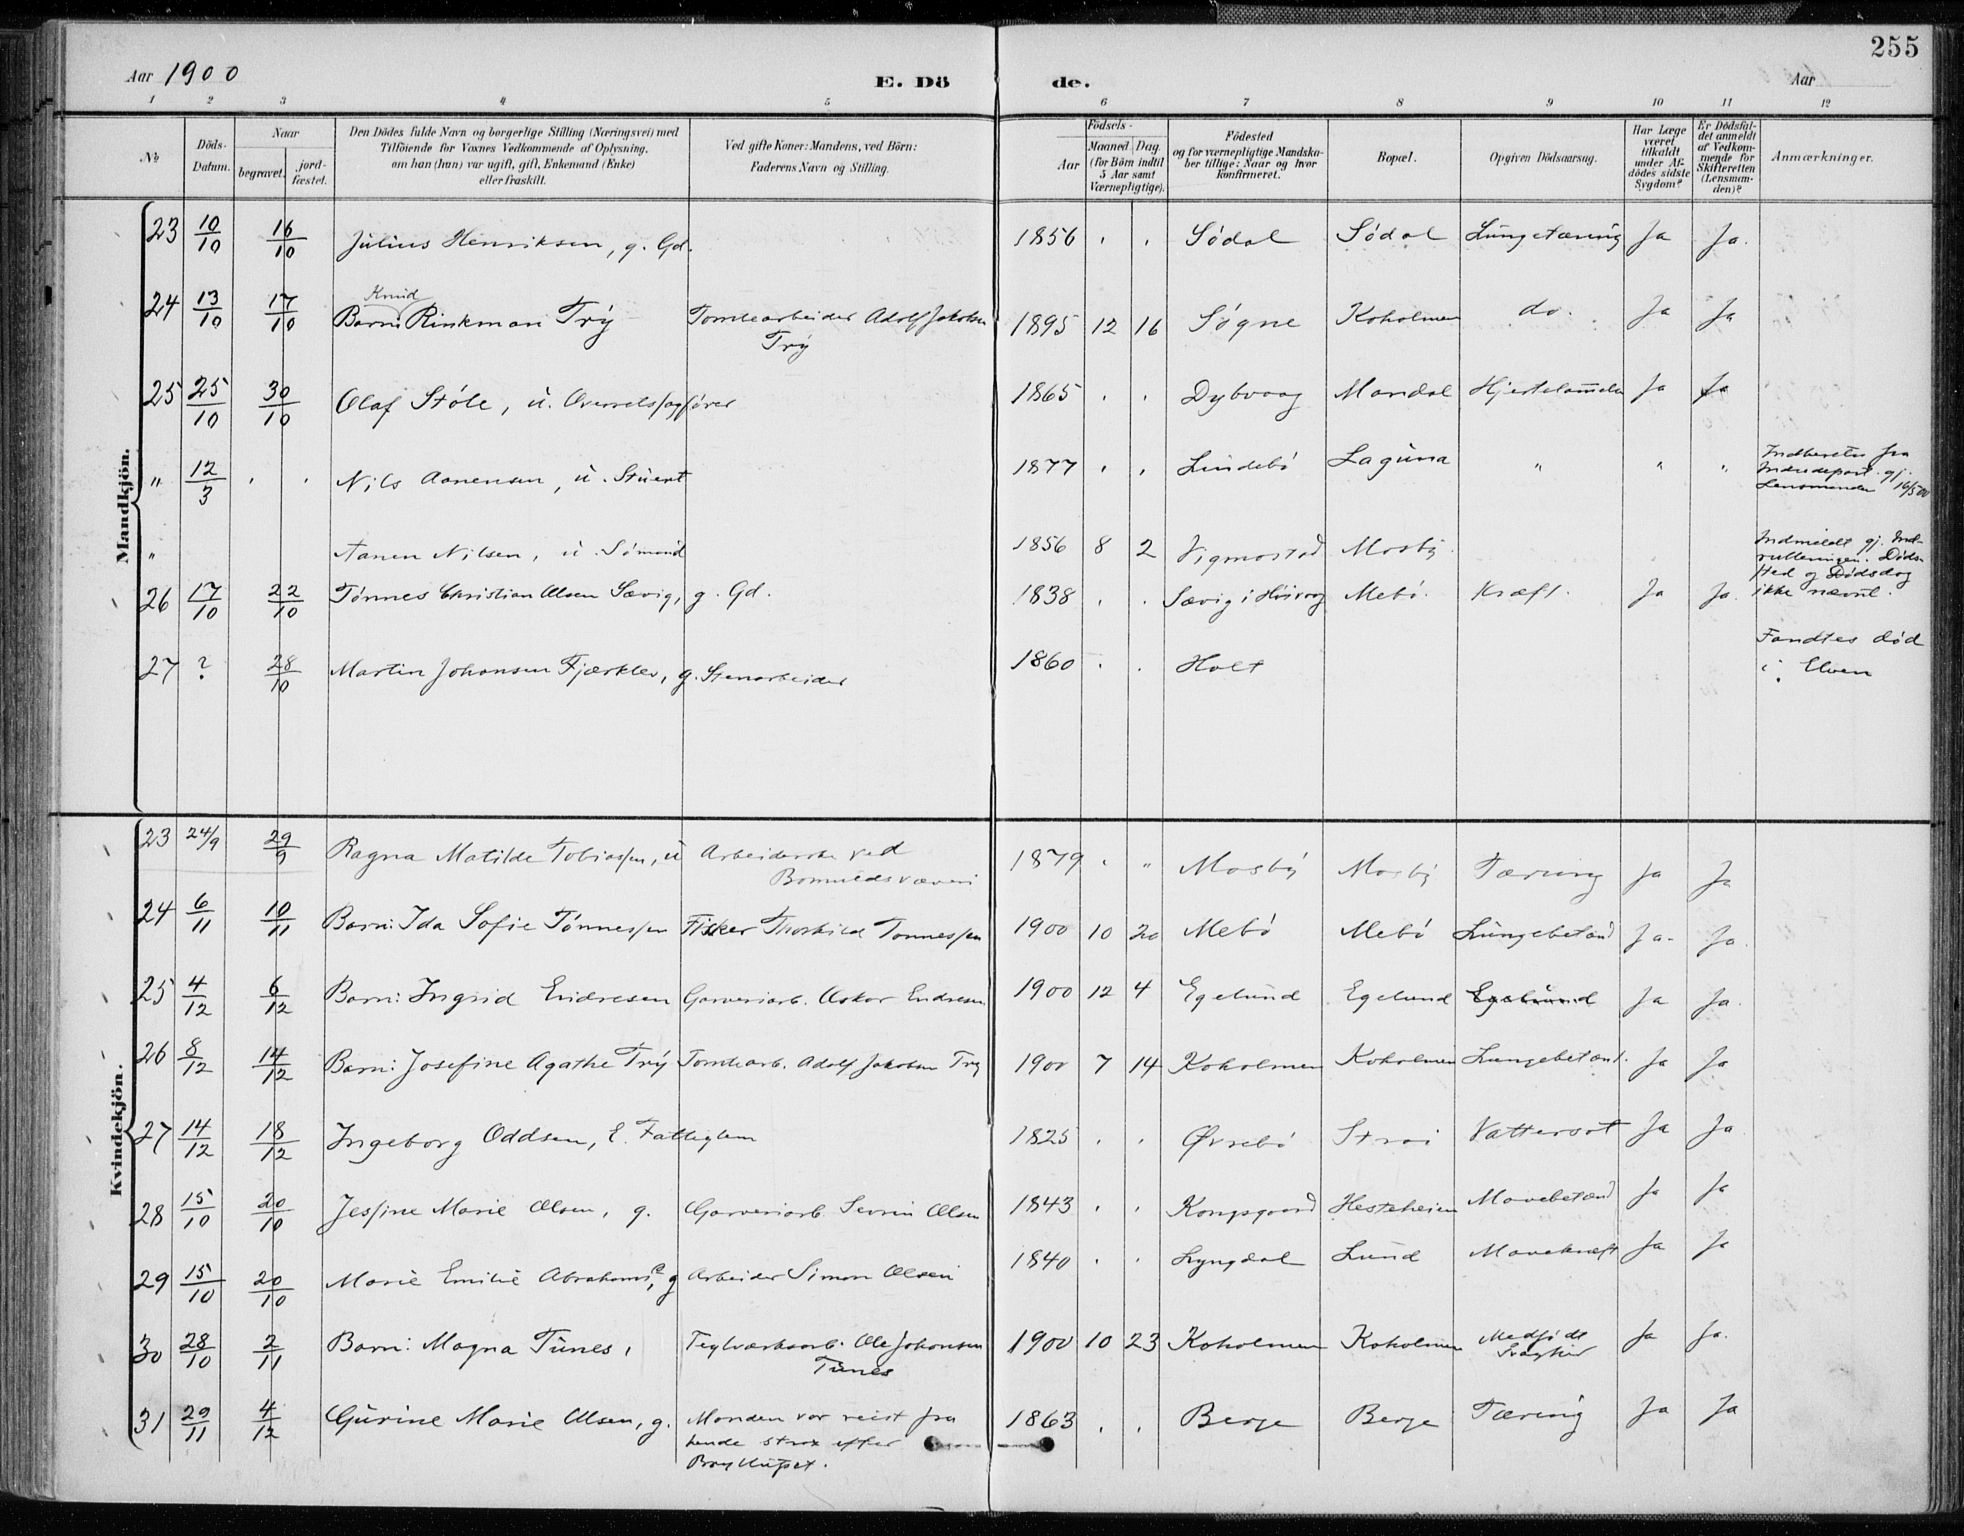 255
Aar 1900 E. Dö de. Aar
1 2 3 4 5 6 7 8 9 10 11 12
№
Döds-Datum.
Naar
begravet.
jord-fæstet.
Den Dödes fulde Navn og borgerlige Stilling (Næringsvei) med
Tilföiende for Voxnes Vedkommende af Oplysning,
om han (hun) var ugift, gift, Enkemand (Enke)
eller fraskilt.
Ved gifte Koner: Mandens, ved Börn:
Faderens Navn og Stilling.
Födsels-
Aar
Maaned. Dag.
(for Börn indtil
5 Aar samt
Værnepligtige).
Födested
og for værnepligtige Mandska-
ber tillige: Naar og hvor
konfirmeret.
Bopæl.
Opgiven Dödsaarsag.
Har Læge
været
tilkaldt
under Af-
dödes sidste
Sygdom?
Er Dödsfal-
det anmeldt
af Vedkom-
mende for
Skifteretten
(Lensman-
den)?
Anmærkninger.
Mandkjön.
23 10/10 16/10 Julius Henriksen, g. Gd. 1856 Södal Södal Lungetæring Ja Ja.
Knud
24 13/10 17/10 Barn: Rinkman Try Tomtearbeider Adolf Jakobsen 1895 12 16 Søgne Koholmen do. Ja Ja
Try
25 25/10 30/10 Olaf Støle, u. Overretssagfører 1865 Dybvaag Mandal Hjertelammelse Ja Ja
" 12/3 Nils Aanensen, u. Stuert 1877 Lindebø Laguna " " " Indberetn fra
Indredepart. gj.
Lensmanden 16/5 00
" Aanen Nilsen, u. Sømand 1856 8 2 Vigmostad Mosby Indmeldt gj. Ind-
rulleringen. Døds-
sted og Dødsdag
ikke nævnt.
26 17/10 22/10 Tønnes Christian Olsen Sævig, g. Gd. 1838 Sævig i Høivaag Mebø. Kræft. Ja Ja.
27 ? 28/10 Martin Johansen Fjærklev, g. Stenarbeider 1860 Holt Fandtes død
i Elven
Kvindekjön.
23 24/9 29/9 Ragna Matilde Tobiassen, u Arbeiderske ved 1879 " Mosby Mosby Tæring Ja Ja
Bomuldsvæveri
24 6/11 10/11 Barn: Ida Sofie Tønnessen Fisker Thorkild Tønnessen 1900 10 20 Mebø Mebø Lungebetænd Ja. Ja.
25 4/12 6/12 Barn: Ingrid Endresen Garveriarb. Oskar Endresen 1900 12 4 Egelund Egelund Egelund Ja Ja.
26 8/12 14/12 Barn: Josefine Agathe Try Tomtearb. Adolf Jakobsen Try 1900 7 14 Koholmen Koholmen Lungebetænd. Ja Ja
27 14/12 18/12 Ingeborg Oddsen, E. Fattiglem 1825 Øvrebø Strai Vattersot Ja Ja.
28 15/10 20/10 Jessine Marie Olsen, g. Garveriarb. Severin Olsen 1843 Kongsgaard Hesteheien Mavebetænd Ja Ja
29 15/10 20/10 Marie Emilie Abrahams, g Arbeider Simon Olsen 1840 Lyngdal Lund Mavekræft Ja Ja
30 28/10 2/11 Barn: Magna Tunes, Teglværksarb. Ole Johansen 1900 10 23 Koholmen Koholmen Medfødt Ja Ja.
Tunes Svaghed
31 29/11 4/12 Gurine Marie Olsen, g. Manden var reist fra 1863 Berge Berge Tæring Ja Ja
hende strax efter
Bryllupet.